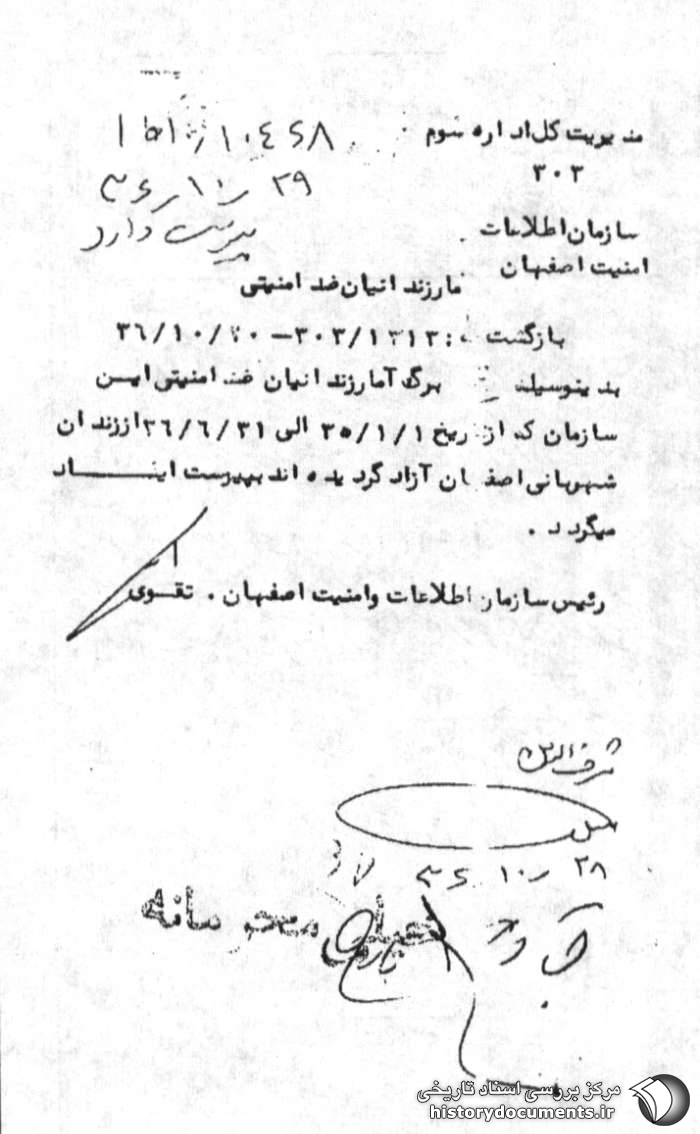 مدیریت کل اداره سوم
۳۰۲
۱۰۴۶۸
۲۹ ر ۱۰ ر ۳۶
پیوست دارد
سازمان اطلاعات
امنیت اصفهان
مار زندانیان ضد امنیتی
بازگشت : ۳۰۳/۱۲۱۲ – ۳۶/۱۰/۲۰
بدینوسیله برگ آمار زندانیان ضد امنیتی ایــن
سازمان که از ریخ ۳۵/۱/۱ الی ۳۶/۶/۳۱ از زندان
شهربانی اصفهان آزاد گردیده اند بپیوست ایفــــاد
میگردد .
رئیس سازمان اطلاعات وامنیت اصفهان . تقــوی
۲۸ ر ۱۰ ۳۶
خیلی محرمانه
مرکز بررسی اسناد تاریخی
historydocuments.ir